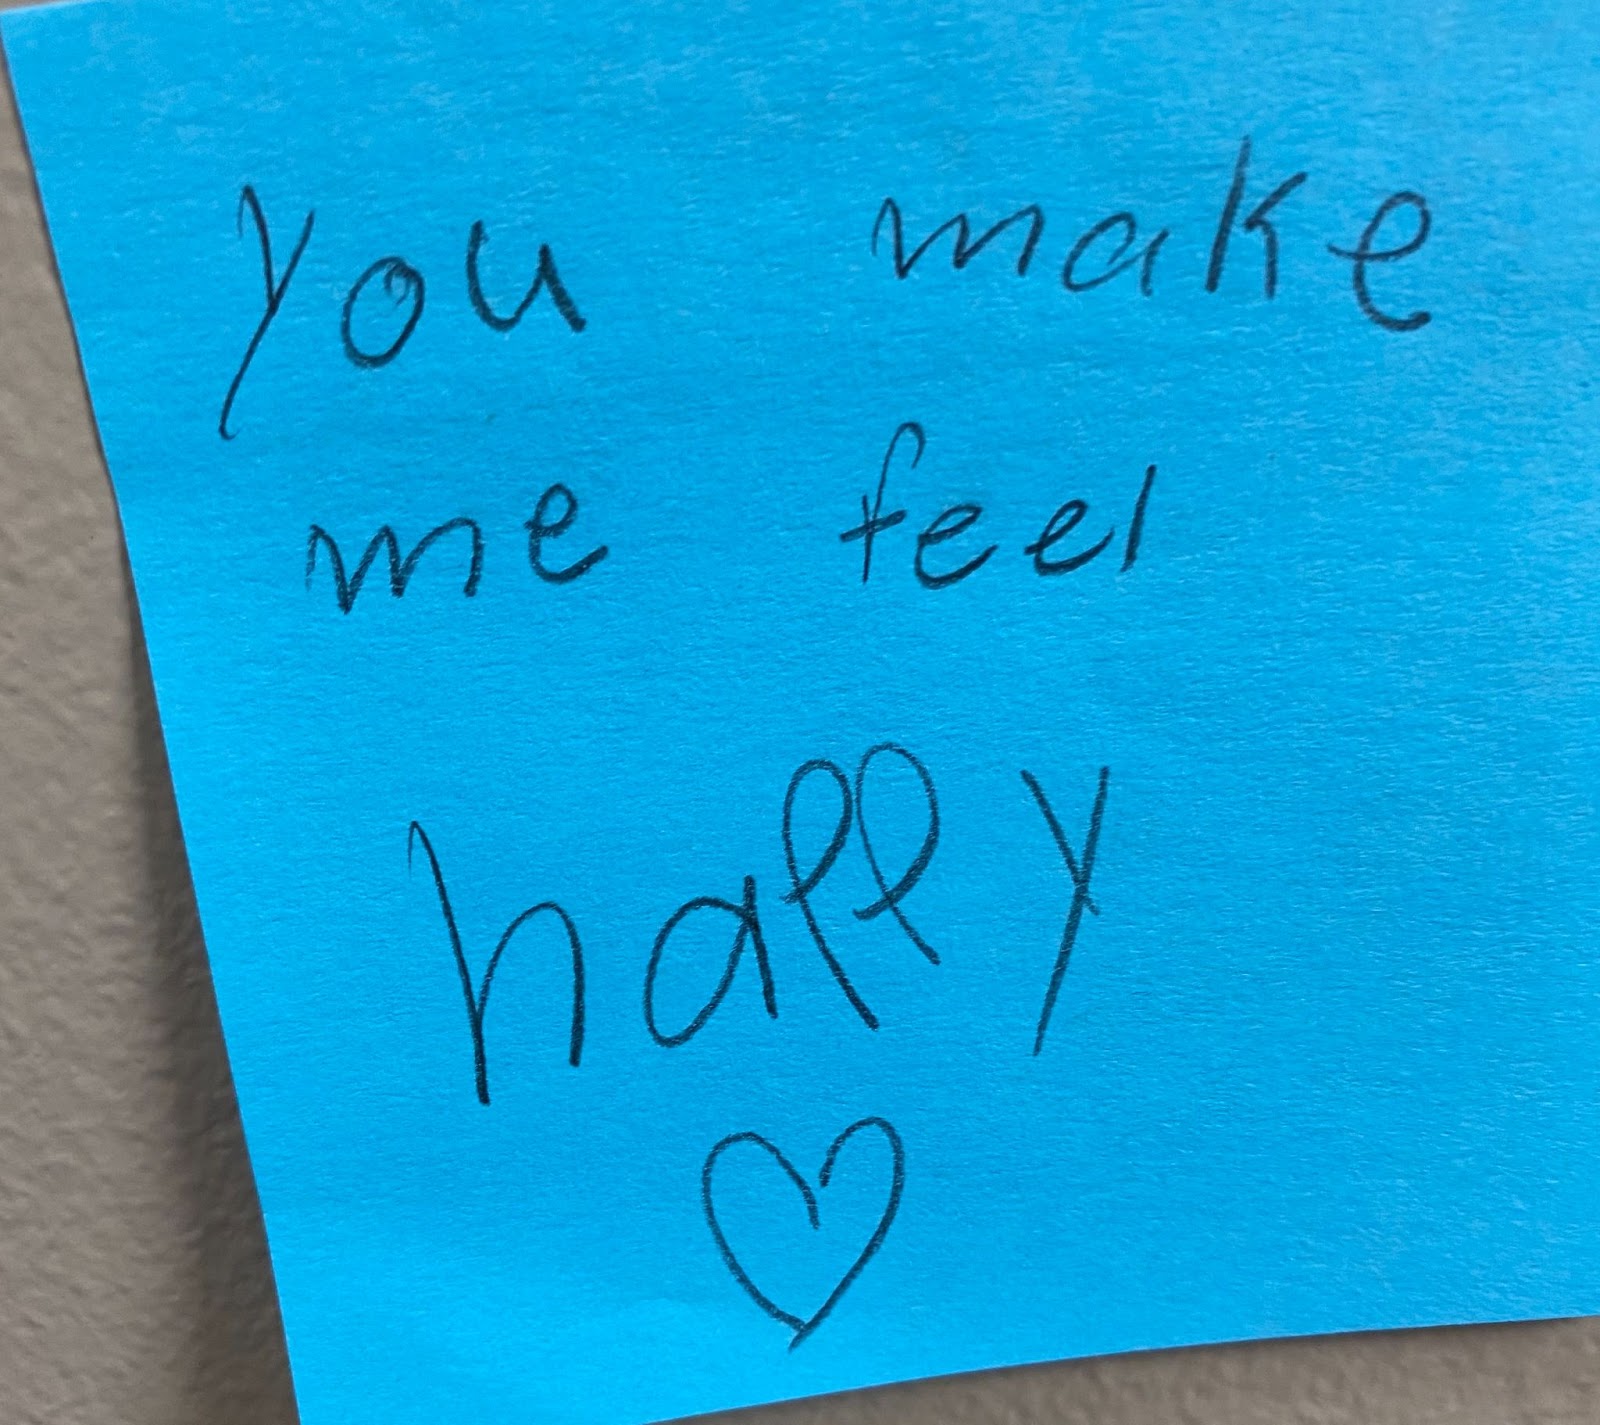 you make
me feel
happy
♡